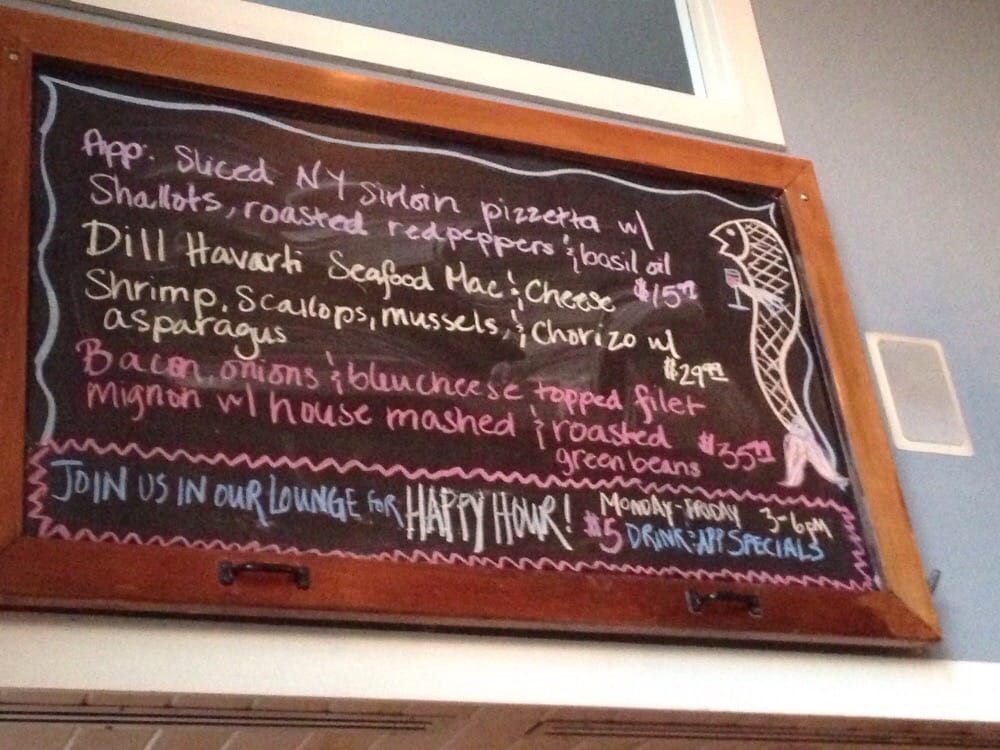 App: Sliced NY Sirloin pizzetta w/
Shallots, roasted red peppers & basil oil
$15
Dill Havarti Seafood Mac & Cheese
Shrimp, Scallops, mussels, & Chorizo w/
asparagus
$29
Bacon, onions & bleu cheese topped filet
Mignon w/ house mashed & roasted
green beans $35
JOIN US IN OUR LOUNGE FOR HAPPY HOUR! MONDAY-FRIDAY 3-6pm
$5 DRINK & APP SPECIALS